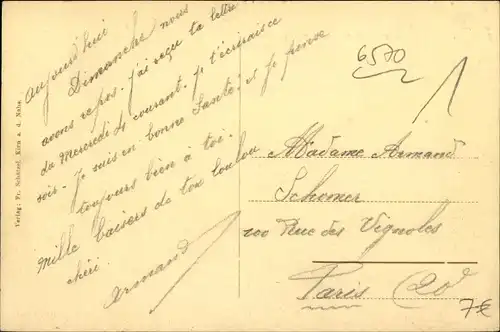 Aujourd'hui
Dimanche nous
avons repos. j'ai reçu ta lettre
du Mercredi 4 courant. Je t'écrirai ce
soir. Je suis en bonne Santé et je pense
toujours bien à toi.
Mille baisers de ton loulou
chéri.
Armand
Verlag: Fr. Schützel, Kirn a. d. Nahe.
6570
1
Madame Armand
Schomer
100 Rue des Vignoles
Paris (20e
7€